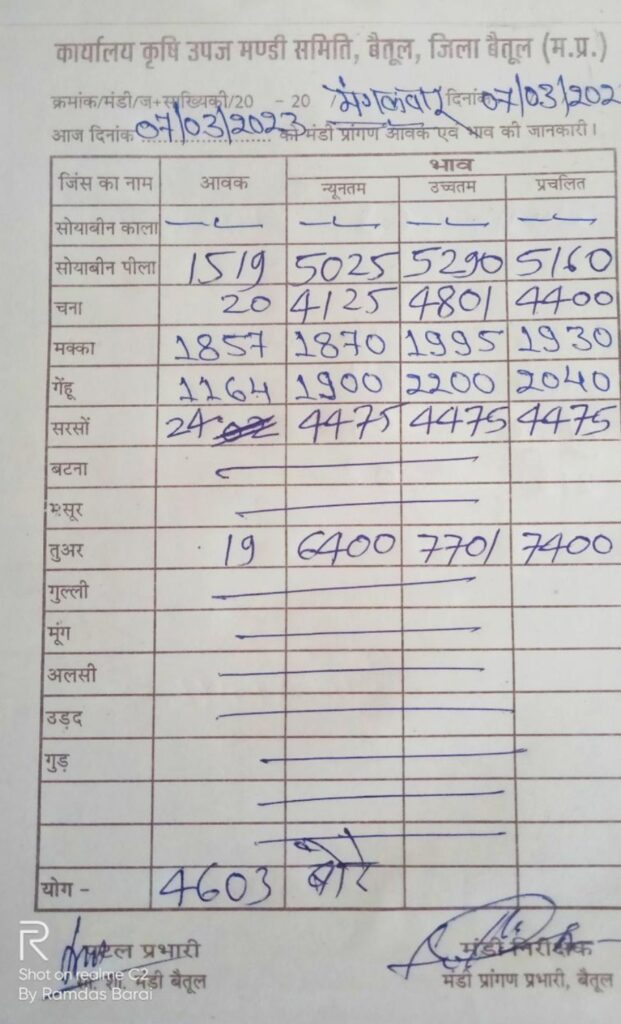 कार्यालय कृषि उपज मण्डी समिति, बैतूल, जिला बैतूल (म.प्र.)
क्रमांक/मंडी/ज+सांख्यिकी/20 - 20 मंगलवार दिनांक 07/03/202
आज दिनांक 07/03/2023 को मंडी प्रांगण आवक एवं भाव की जानकारी।
जिंस का नाम आवक भाव
न्यूनतम उच्चतम प्रचलित
सोयाबीन काला
सोयाबीन पीला 1519 5025 5290 5160
चना 20 4125 4801 4400
मक्का 1857 1870 1995 1930
गेंहू 1164 1900 2200 2040
सरसों 24 4475 4475 4475
बटना
मसूर
तुअर 19 6400 7701 7400
गुल्ली
मूंग
अलसी
उड़द
गुड़
योग - 4603 बोरे
प्रभारी मंडी निरीक्षक
मंडी बैतूल मंडी प्रांगण प्रभारी, बैतूल
R
Shot on realme C2
By Ramdas Barai